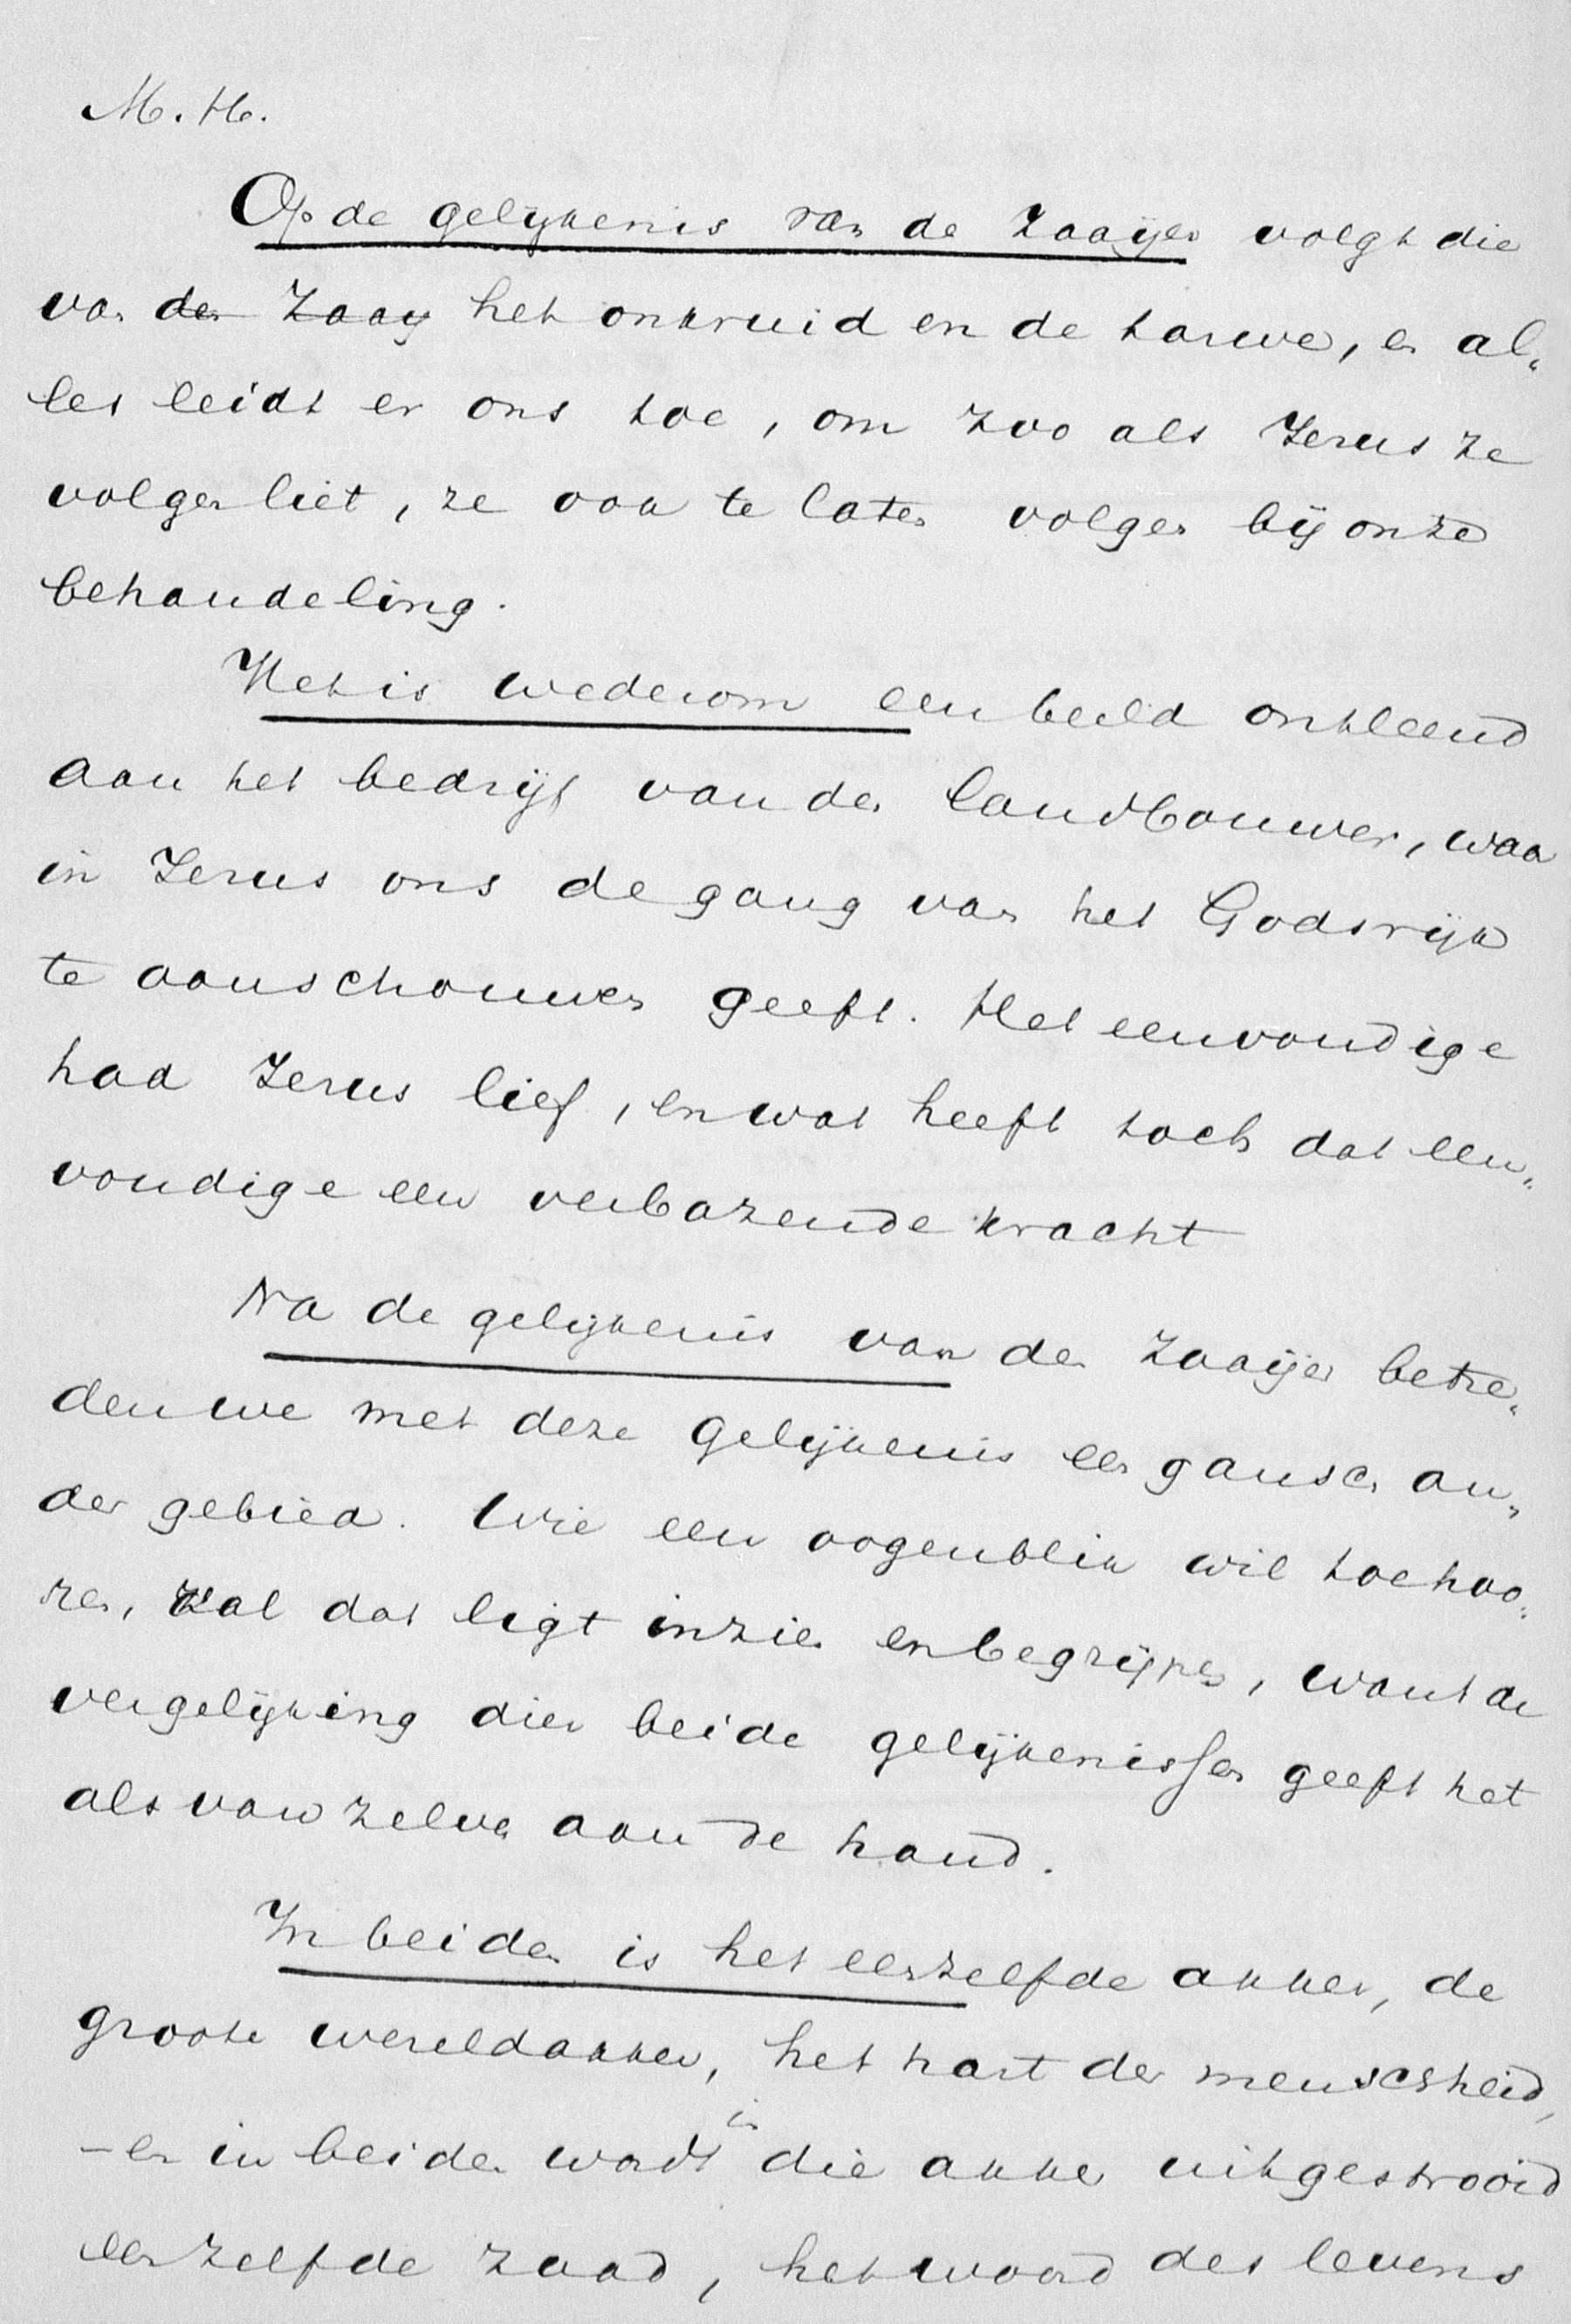 M. H.
Op de gelijkenis van de Zaaijer volgt die
van den Zaay het onkruid en de tarwe, en al„
les leidt er ons toe, om zoo als Jezus ze
volgen liet, ze ook te laten volgen bij onze
behandeling.
Het is wederom een beeld ontleend
aan het bedrijf van den landbouwer, waar
in Jezus ons de gang van het Godsrijk
te aanschouwen geeft. Het eenvoudige
had Jezus lief, en wat heeft toch dat een„
voudige een verbazende kracht
Na de gelijkenis van den Zaaijer betre„
den we met deze gelijkenis een gansch an„
der gebied. Wie een oogenblik wil toehoo„
ren, zal dat ligt inzien en begrijpen, want de
vergelijking dier beide gelijkenissen geeft het
als van zelven aan de hand.
In beiden is het eenzelfde akker, de
groote wereldakker, het hart der menschheid,
– en in beiden wordt in die akker uitgestrooid
eenzelfde zaad, het woord des levens